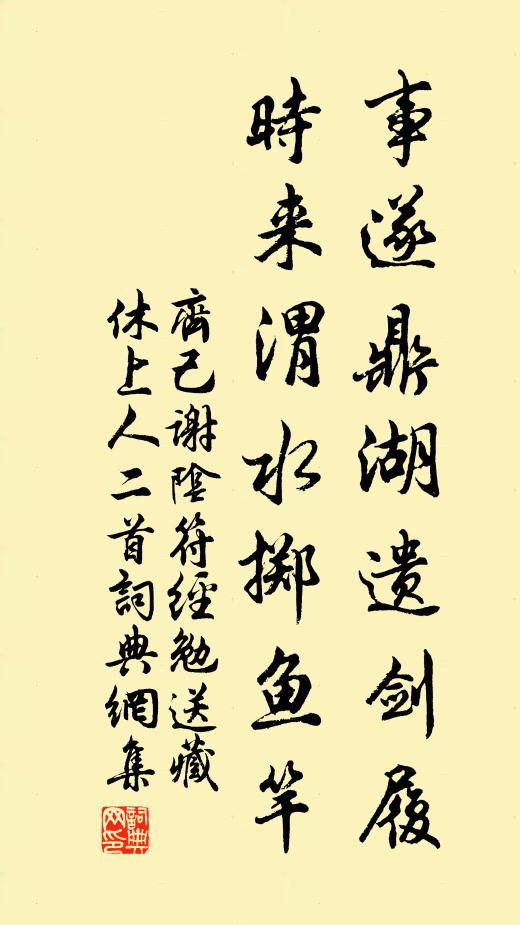 事遂鼎湖遗剑履
時来渭水掷鱼竿
齊己謝陰符經勉送藏
休上人二首詞典網集
詞典网印